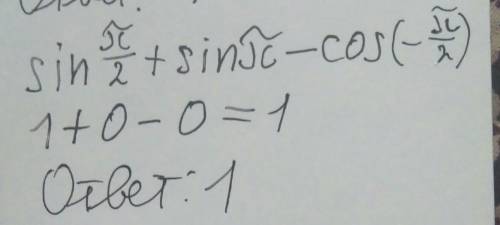 sin π/2 + sin π − cos(−π/2)
1 + 0 − 0 = 1
Ответ: 1